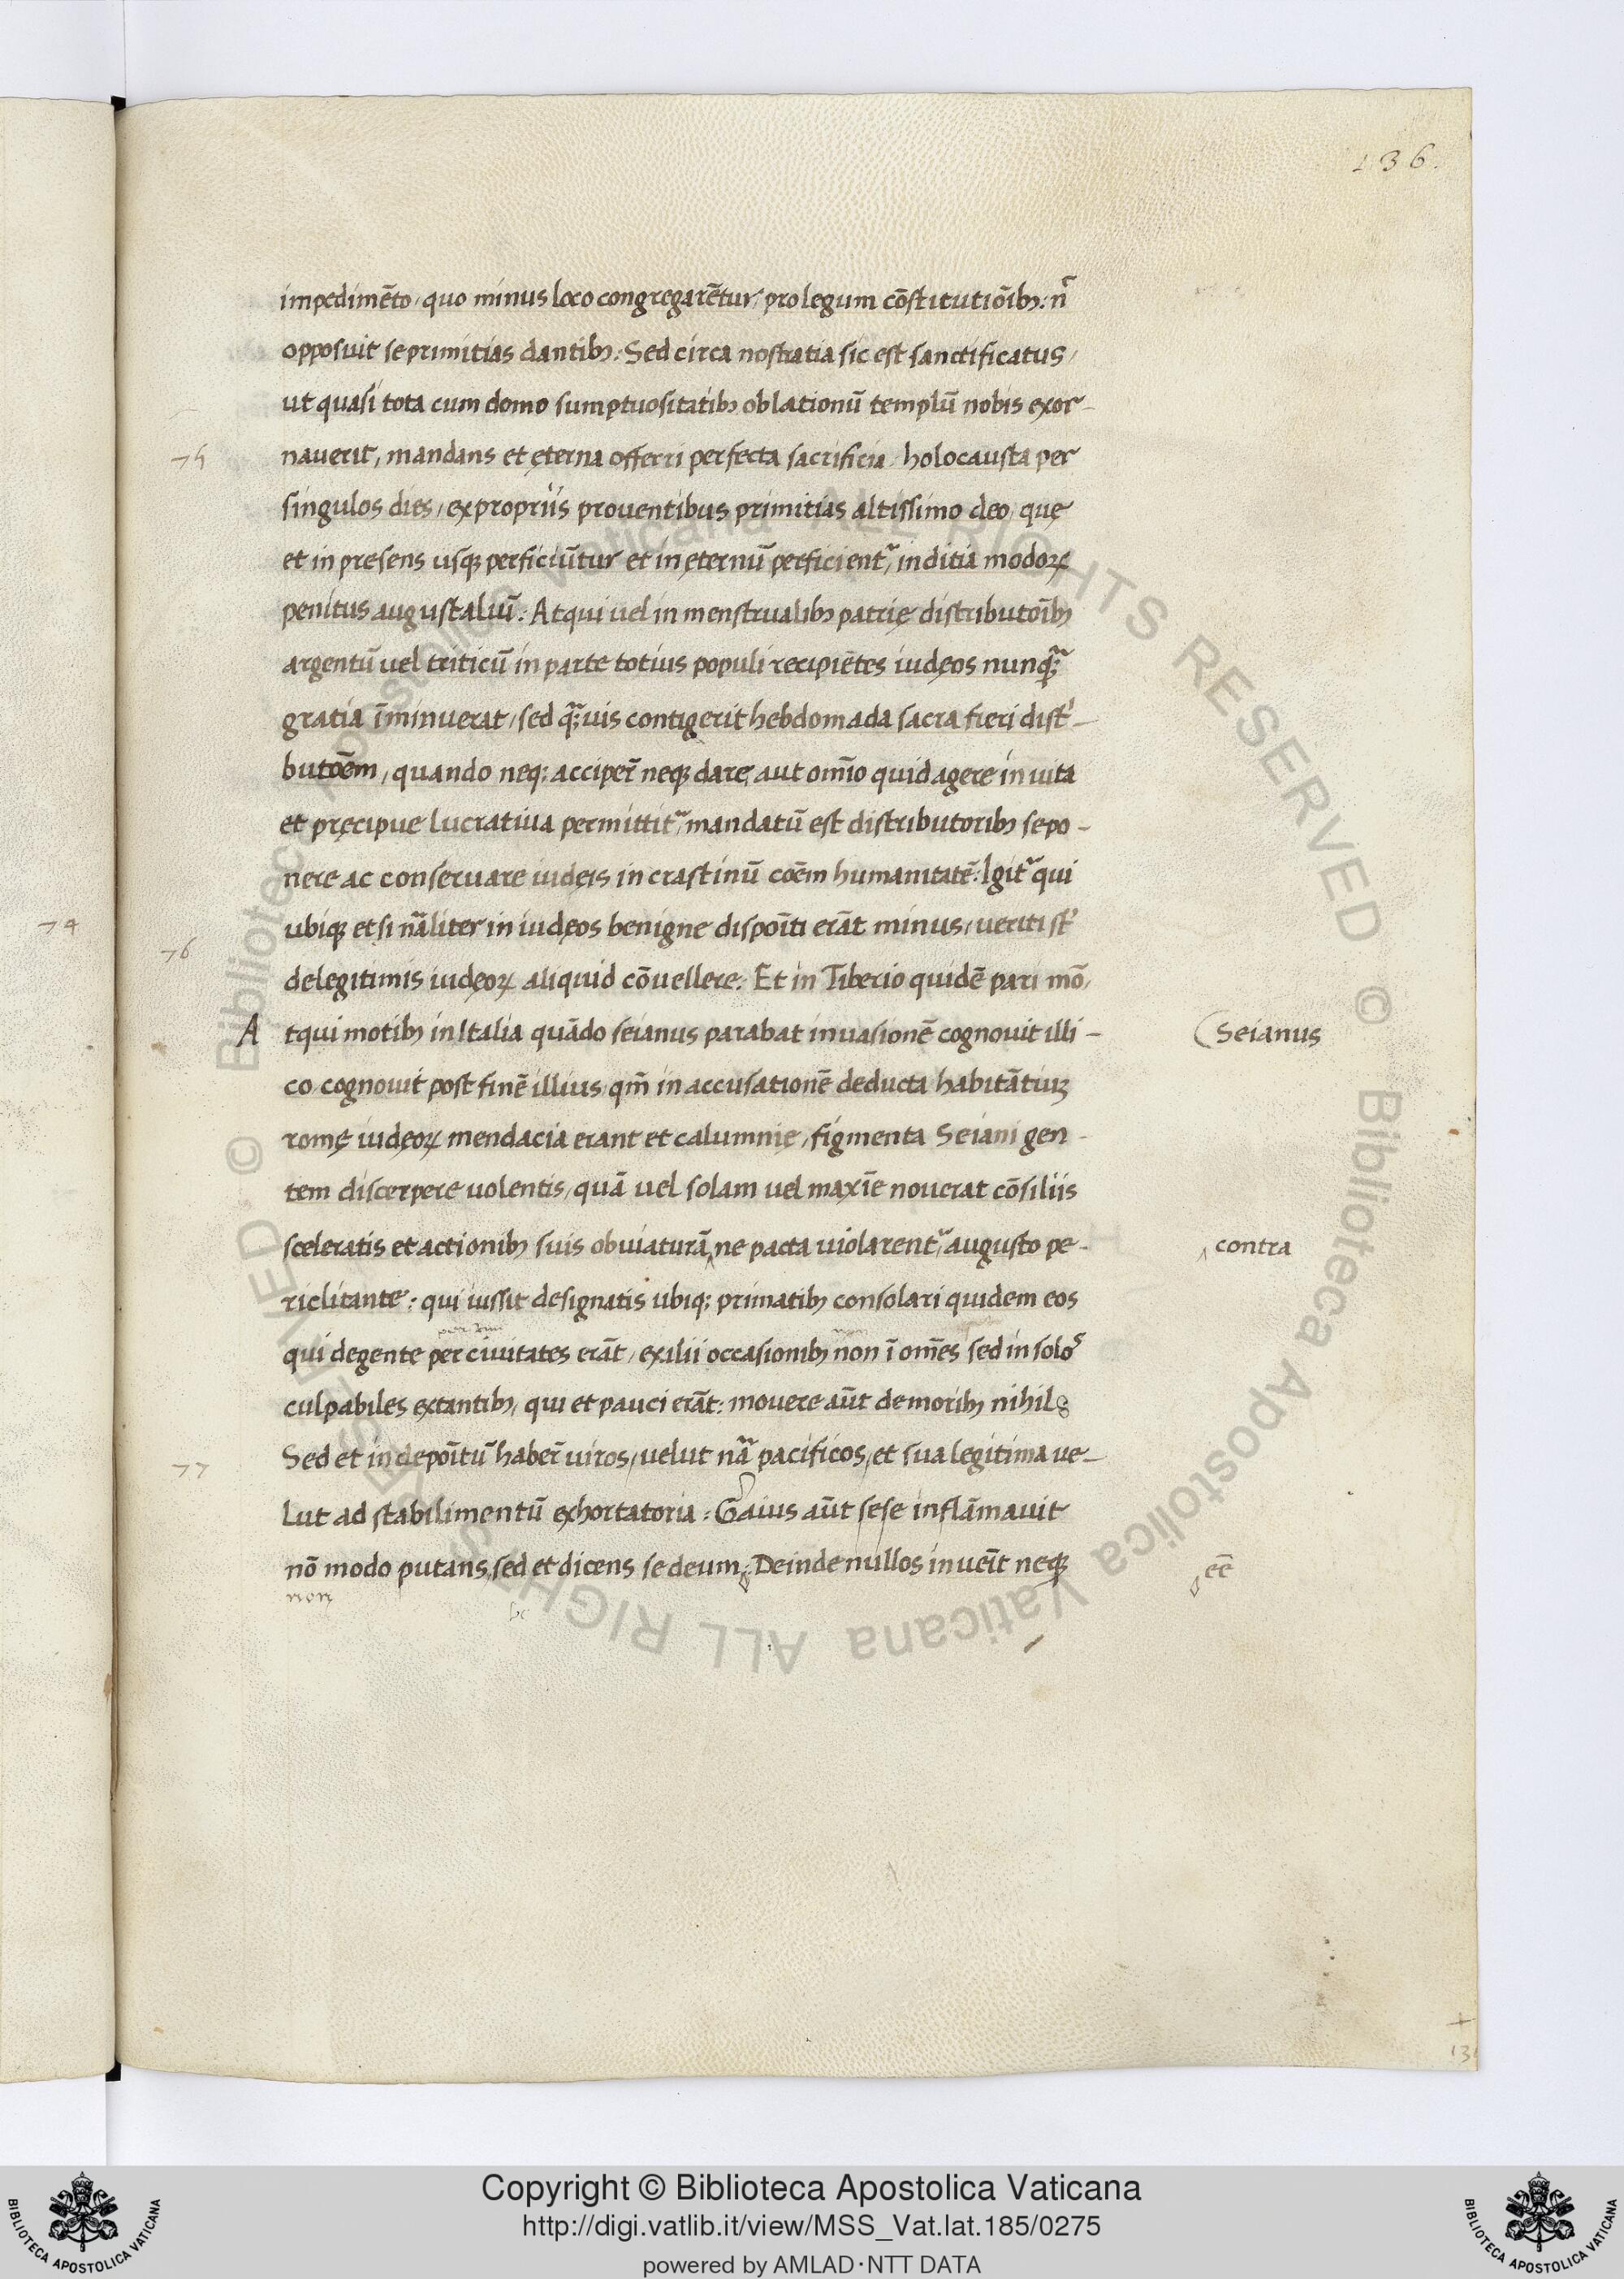 136.
impedimēto, quo minus loco congregarētur, pro legum cōstitutiōibꝫ: nr̄
opposuit se primitias dantibꝫ: Sed circa nostratia sic est sanctificatus,
ut quasi tota cum domo sumptuositatibꝫ oblationū templū nobis exor-
75 nauerit, mandans et ęterna offerri perfecta sacrificia, holocausta per
singulos dies, ex propriis prouentibus primitias altissimo deo, quę
et in presens usqꝫ perficiūtur et in ęternū perficientᷣ, inditia modoꝝ
penitus augustaliū: Atqui uel in menstrualibꝫ patrię distributōibꝫ
argentū uel triticū in parte totius populi recipiētes iudęos nunqᷓꝫ
gratia īminuerat, sed qᷓꝫuis contigerit hebdomada sacra fieri distⁱ-
butōem, quando neqꝫ acciper̄ neqꝫ dare, aut om̄io quid agere in uita
et pręcipue lucratiua permittitᷣ, mandatū est distributoribꝫ sepo-
nere ac conseruare iudęis in crastinū cōem humanitatē: Igitᷣ qui
74
ubiqꝫ et si nāliter in iudęos benigne dispoīti erāt minus, ueriti st̄
76
de legitimis iudęoꝝ aliquid cōuellere: Et in Tiberio quidē pari mō,
Atqui motibꝫ in Italia quādo seianus parabat inuasionē cognouit illi-
Seianus
co, cognouit post finē illius, qm̄ in accusationē deducta habitātiuꝫ
romę iudęoꝝ mendacia erant et calumnię, figmenta Seiani gen-
tem discerpere uolentis, quā uel solam uel maxīe nouerat cōsiliis
sceleratis et actionibꝫ suis obuiaturā ne pacta uiolarentᷣ, augusto pe-
contra
riclitante: qui iussit designatis ubiqꝫ primatibꝫ consolari quidem eos
qui degente per ciuitates erāt, exilii occasionibꝫ non ī om̄es sed in solos
culpabiles extantibꝫ, qui et pauci erāt: mouere aūt de moribꝫ nihil
77 Sed et in depoītū haber̄ uiros, uelut nā pacificos, et sua legitima ue-
lut ad stabilimentū exhortatoria: Gaius aūt sese inflāmauit
nō modo putans, sed et dicens se deum: Deinde nullos inueīt neqꝫ
eē
non